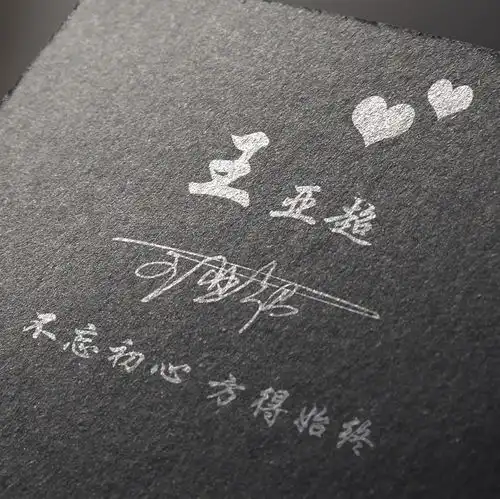 王亚超
不忘初心 方得始终